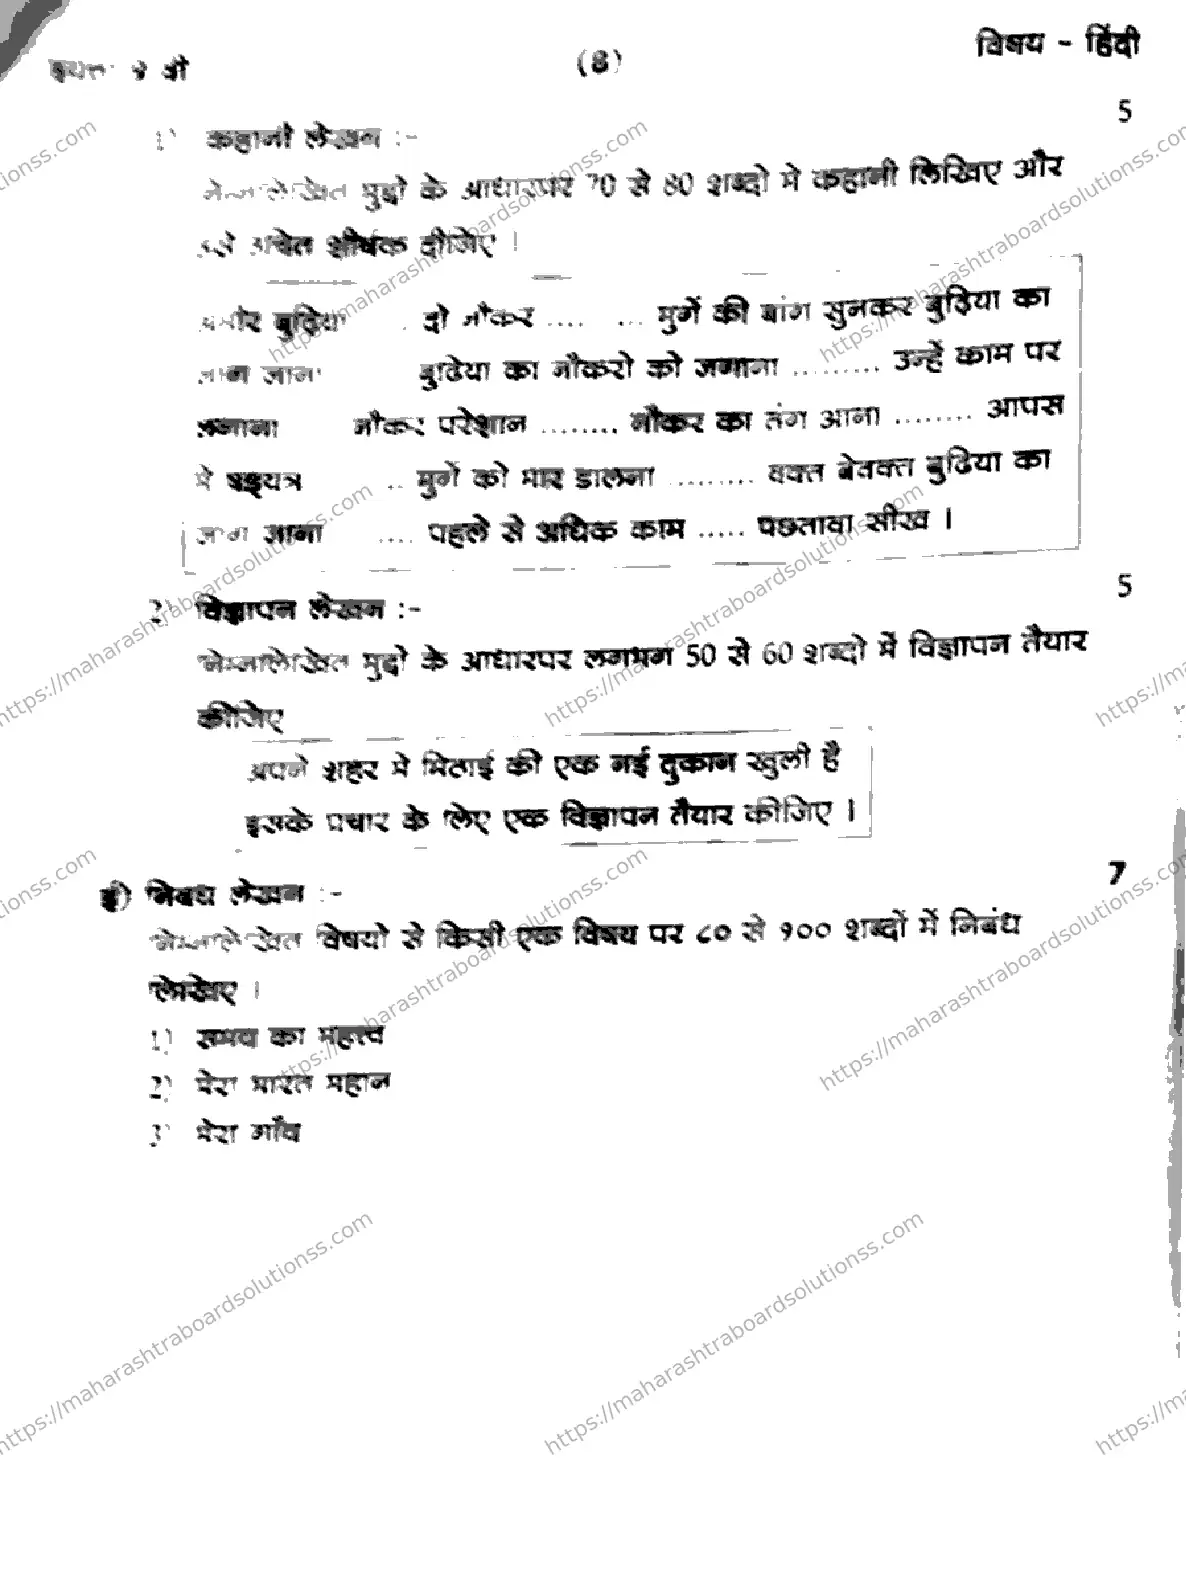 विषय - हिंदी
इयत्ता 9 वी
(8)
5
1) कहानी लेखन :-
निम्नलिखित मुद्दो के आधारपर 70 से 80 शब्दो मे कहानी लिखिए और
उसे उचित शीर्षक दीजिए ।
अमीर बुढ़िया . दो नौकर .... ... मुर्गे की बांग सुनकर बुढ़िया का
जाग जाना बुढिया का नौकरो को जगाना ......... उन्हें काम पर
लगाना नौकर परेशान ........ नौकर का तंग आना ........ आपस
मे षड्यत्र .. मुर्गे को मार डालना ......... वक्त बेवक्त बुढिया का
जाग जाना .... पहले से अधिक काम ..... पछतावा सीख ।
5
2) विज्ञापन लेखन :-
निम्नलिखित मुद्दो के आधारपर लगभग 50 से 60 शब्दो में विज्ञापन तैयार
कीजिए
अपने शहर मे मिठाई की एक नई दुकान खुली है
इसके प्रचार के लिए एक विज्ञापन तैयार कीजिए ।
7
इ) निबंध लेखन :-
निम्नलिखित विषयो से किसी एक विषय पर ८० से १०० शब्दों में निबंध
लिखिए ।
1) समय का महत्त्व
2) मेरा भारत महान
3) मेरा गाँव
https://maharashtraboardsolutionss.com